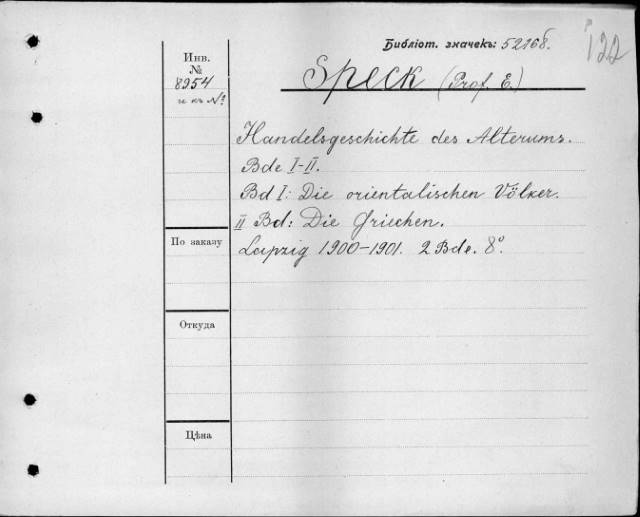 Библіот. значекъ: 52168.
122
Инв.
№
8954
и къ №?
Speck (Prof. E.)
Handelsgeschichte des Alterums.
Bde I-II.
Bd I: Die orientalischen Völker.
II Bd: Die Griechen.
Leipzig 1900-1901. 2 Bde. 8°
По заказу
Откуда
Цѣна